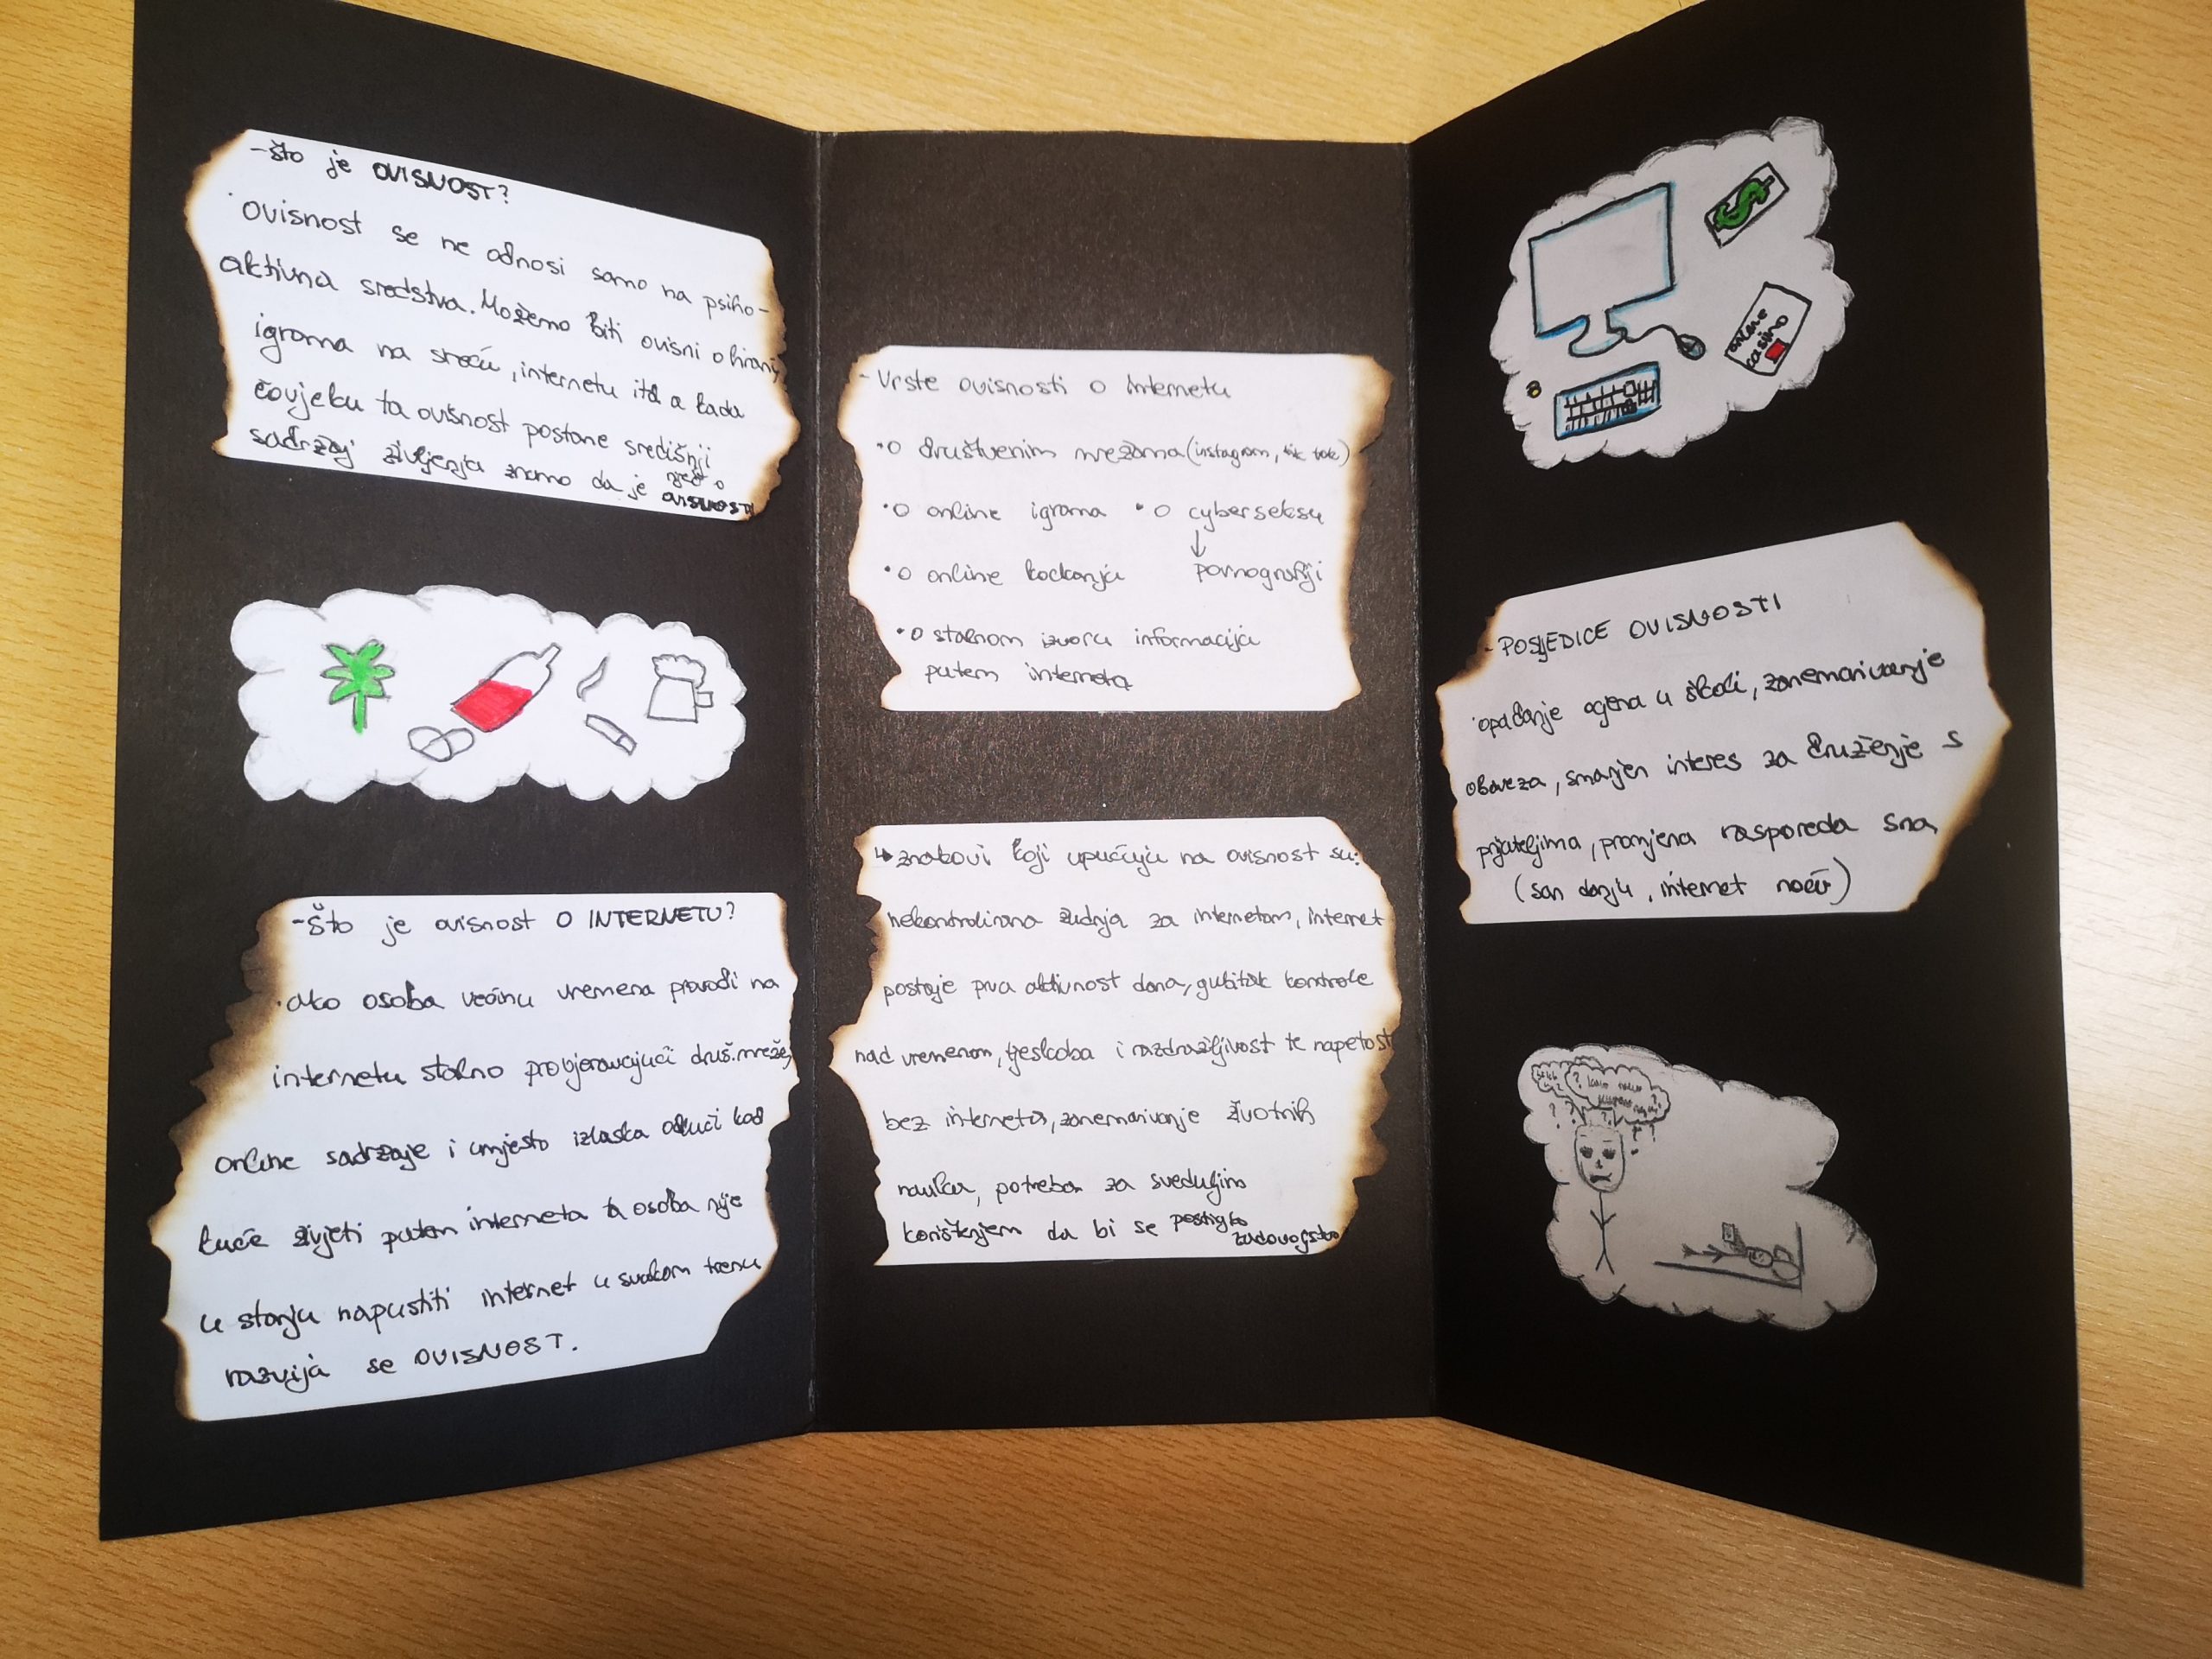 -što je OVISNOST?
·Ovisnost se ne odnosi samo na psiho-
aktivna sredstva. Možemo biti ovisni o hrani,
igrama na sreću, internetu itd a kada
čovjeku ta ovisnost postane središnji
sadržaj življenja znamo da je riječ o
OVISNOSTI
-Što je ovisnost O INTERNETU?
·ako osoba većinu vremena provodi na
internetu stalno provjeravajući druš.mreže,
online sadržaje i umjesto izlaska odluči kod
kuće živjeti putem interneta ta osoba nije
u stanju napustiti internet u svakom trenu
razvija se OVISNOST.
-Vrste ovisnosti o internetu
·o društvenim mrežama (instagram, tik tok)
·o online igrama ·o cyberseksu
↓
·o online kockanju pornografiji
·o stalnom izvoru informacija
putem interneta
↳znakovi koji upućuju na ovisnost su:
nekontrolirana žudnja za internetom, internet
postaje prva aktivnost dana, gubitak kontrole
nad vremenom, tjeskoba i razdražljivost te napetost
bez interneta, zanemarivanje životnih
navika, potreba za sveduljim
korištenjem da bi se postiglo
zadovoljstvo
$
online
casino
-POSLJEDICE OVISNOSTI
·opadanje ocjena u školi, zanemarivanje
obaveza, smanjen interes za druženje s
prijateljima, promjena rasporeda sna
(san danju, internet noću)